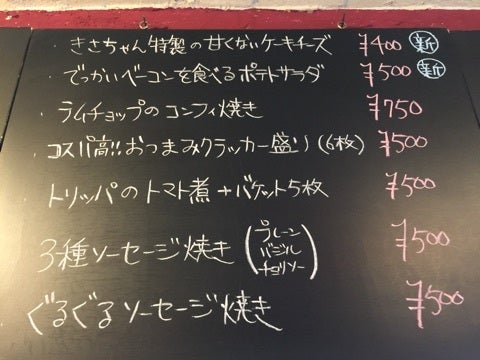 ・きさちゃん特製の甘くないケーキチーズ ¥400 新
・でっかいベーコンを食べるポテトサラダ ¥500 新
・ラムチョップのコンフィ焼き ¥750
・コスパ高!!おつまみクラッカー盛り(6枚) ¥500
・トリッパのトマト煮+バケット5枚 ¥500
・3種ソーセージ焼き(プレーン バジル チョリソー) ¥500
・ぐるぐるソーセージ焼き ¥500